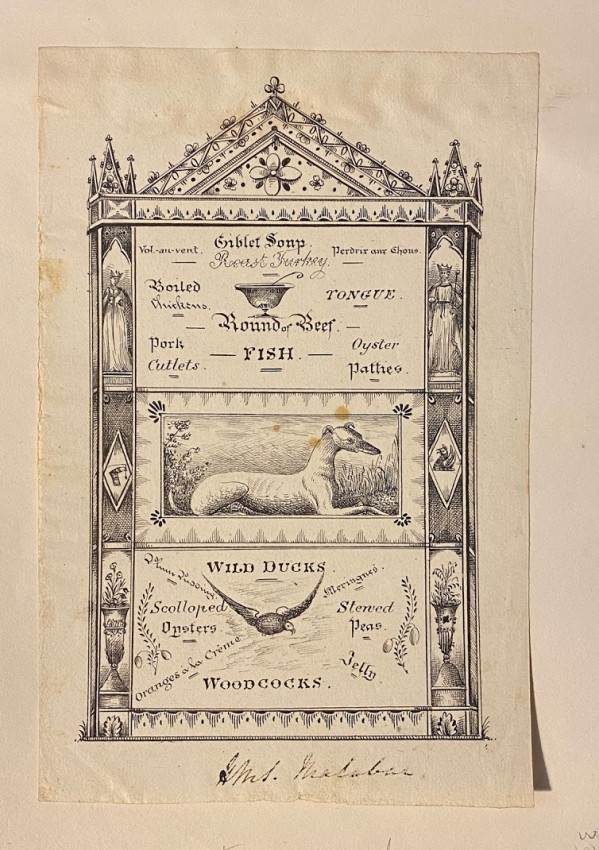 Giblet Soup.
Vol-au-vent.
Roast Turkey.
Perdrix aux Choux.
Boiled
Chickens.
TONGUE.
Round of Beef.
Pork
Cutlets.
FISH.
Oyster
Patties.
WILD DUCKS
Plum Pudding.
Meringues.
Scolloped
Oysters.
Stewed
Peas.
Oranges a la Crême
Jelly.
WOODCOCKS.
HMS. Malabar